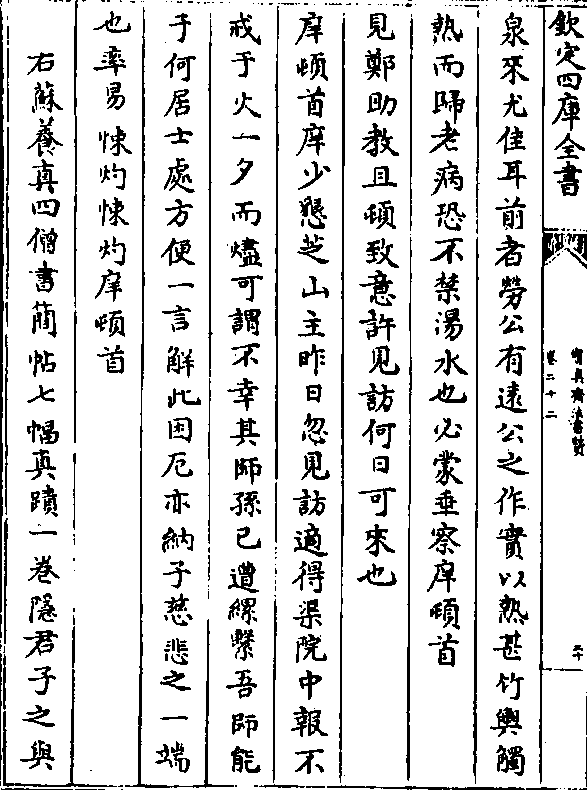 欽定四庫全書
寶真齋法書贊
卷二十二
二十
泉來尤佳耳前者勞公有遠公之作實以熱甚竹輿觸
熱而歸老病恐不禁湯水也必蒙垂察庠頓首
見鄭助教且頓致意許見訪何日可來也
庠頓首庠少懇芝山主昨日忽見訪適得渠院中報不
戒于火一夕而燼可謂不幸其師孫已遭縲繫吾師能
于何居士處方便一言解此困厄亦納子慈悲之一端
也率易悚灼悚灼庠頓首
右蘇養真四僧書簡帖七幅真蹟一卷隱君子之與